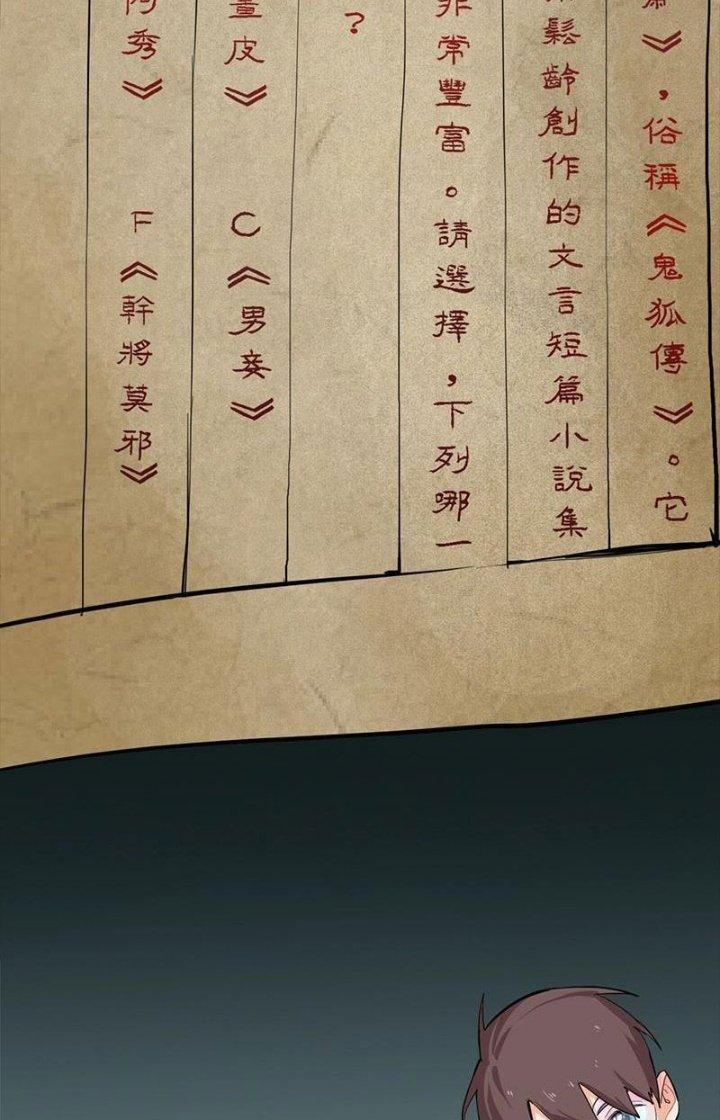 》，俗稱《鬼狐傳》。它
鬆齡創作的文言短篇小說集
非常豐富。請選擇，下列哪一
？
畫皮》　C《男妾》
阿秀》　F《幹將莫邪》